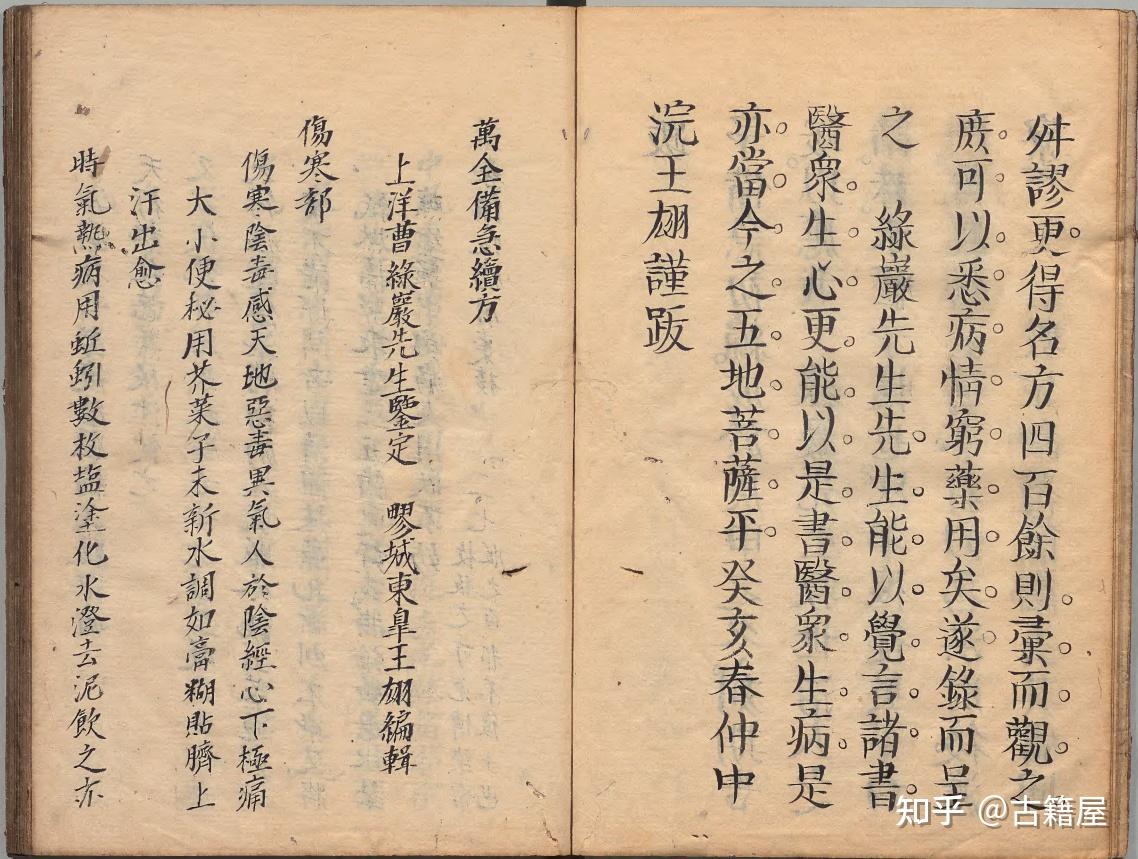 舛謬更得名方四百餘則彙而觀之
庻可以悉病情窮藥用矣遂錄而呈
之　綠巖先生先生能以覺言諸書
醫衆生心更能以是書醫衆生病是
亦當今之五地菩薩乎癸亥春仲中
浣王翃謹跋
萬全備急續方
上洋曹綠巖先生鑒定　醪城東皐王翃編輯
傷寒部
傷寒陰毒感天地惡毒異氣人於陰經心下極痛
大小便秘用芥菜子末新水調如膏糊貼臍上
汗出愈
時氣熱病用蚯蚓數枚塩塗化水澄去泥飲之亦
知乎 @古籍屋